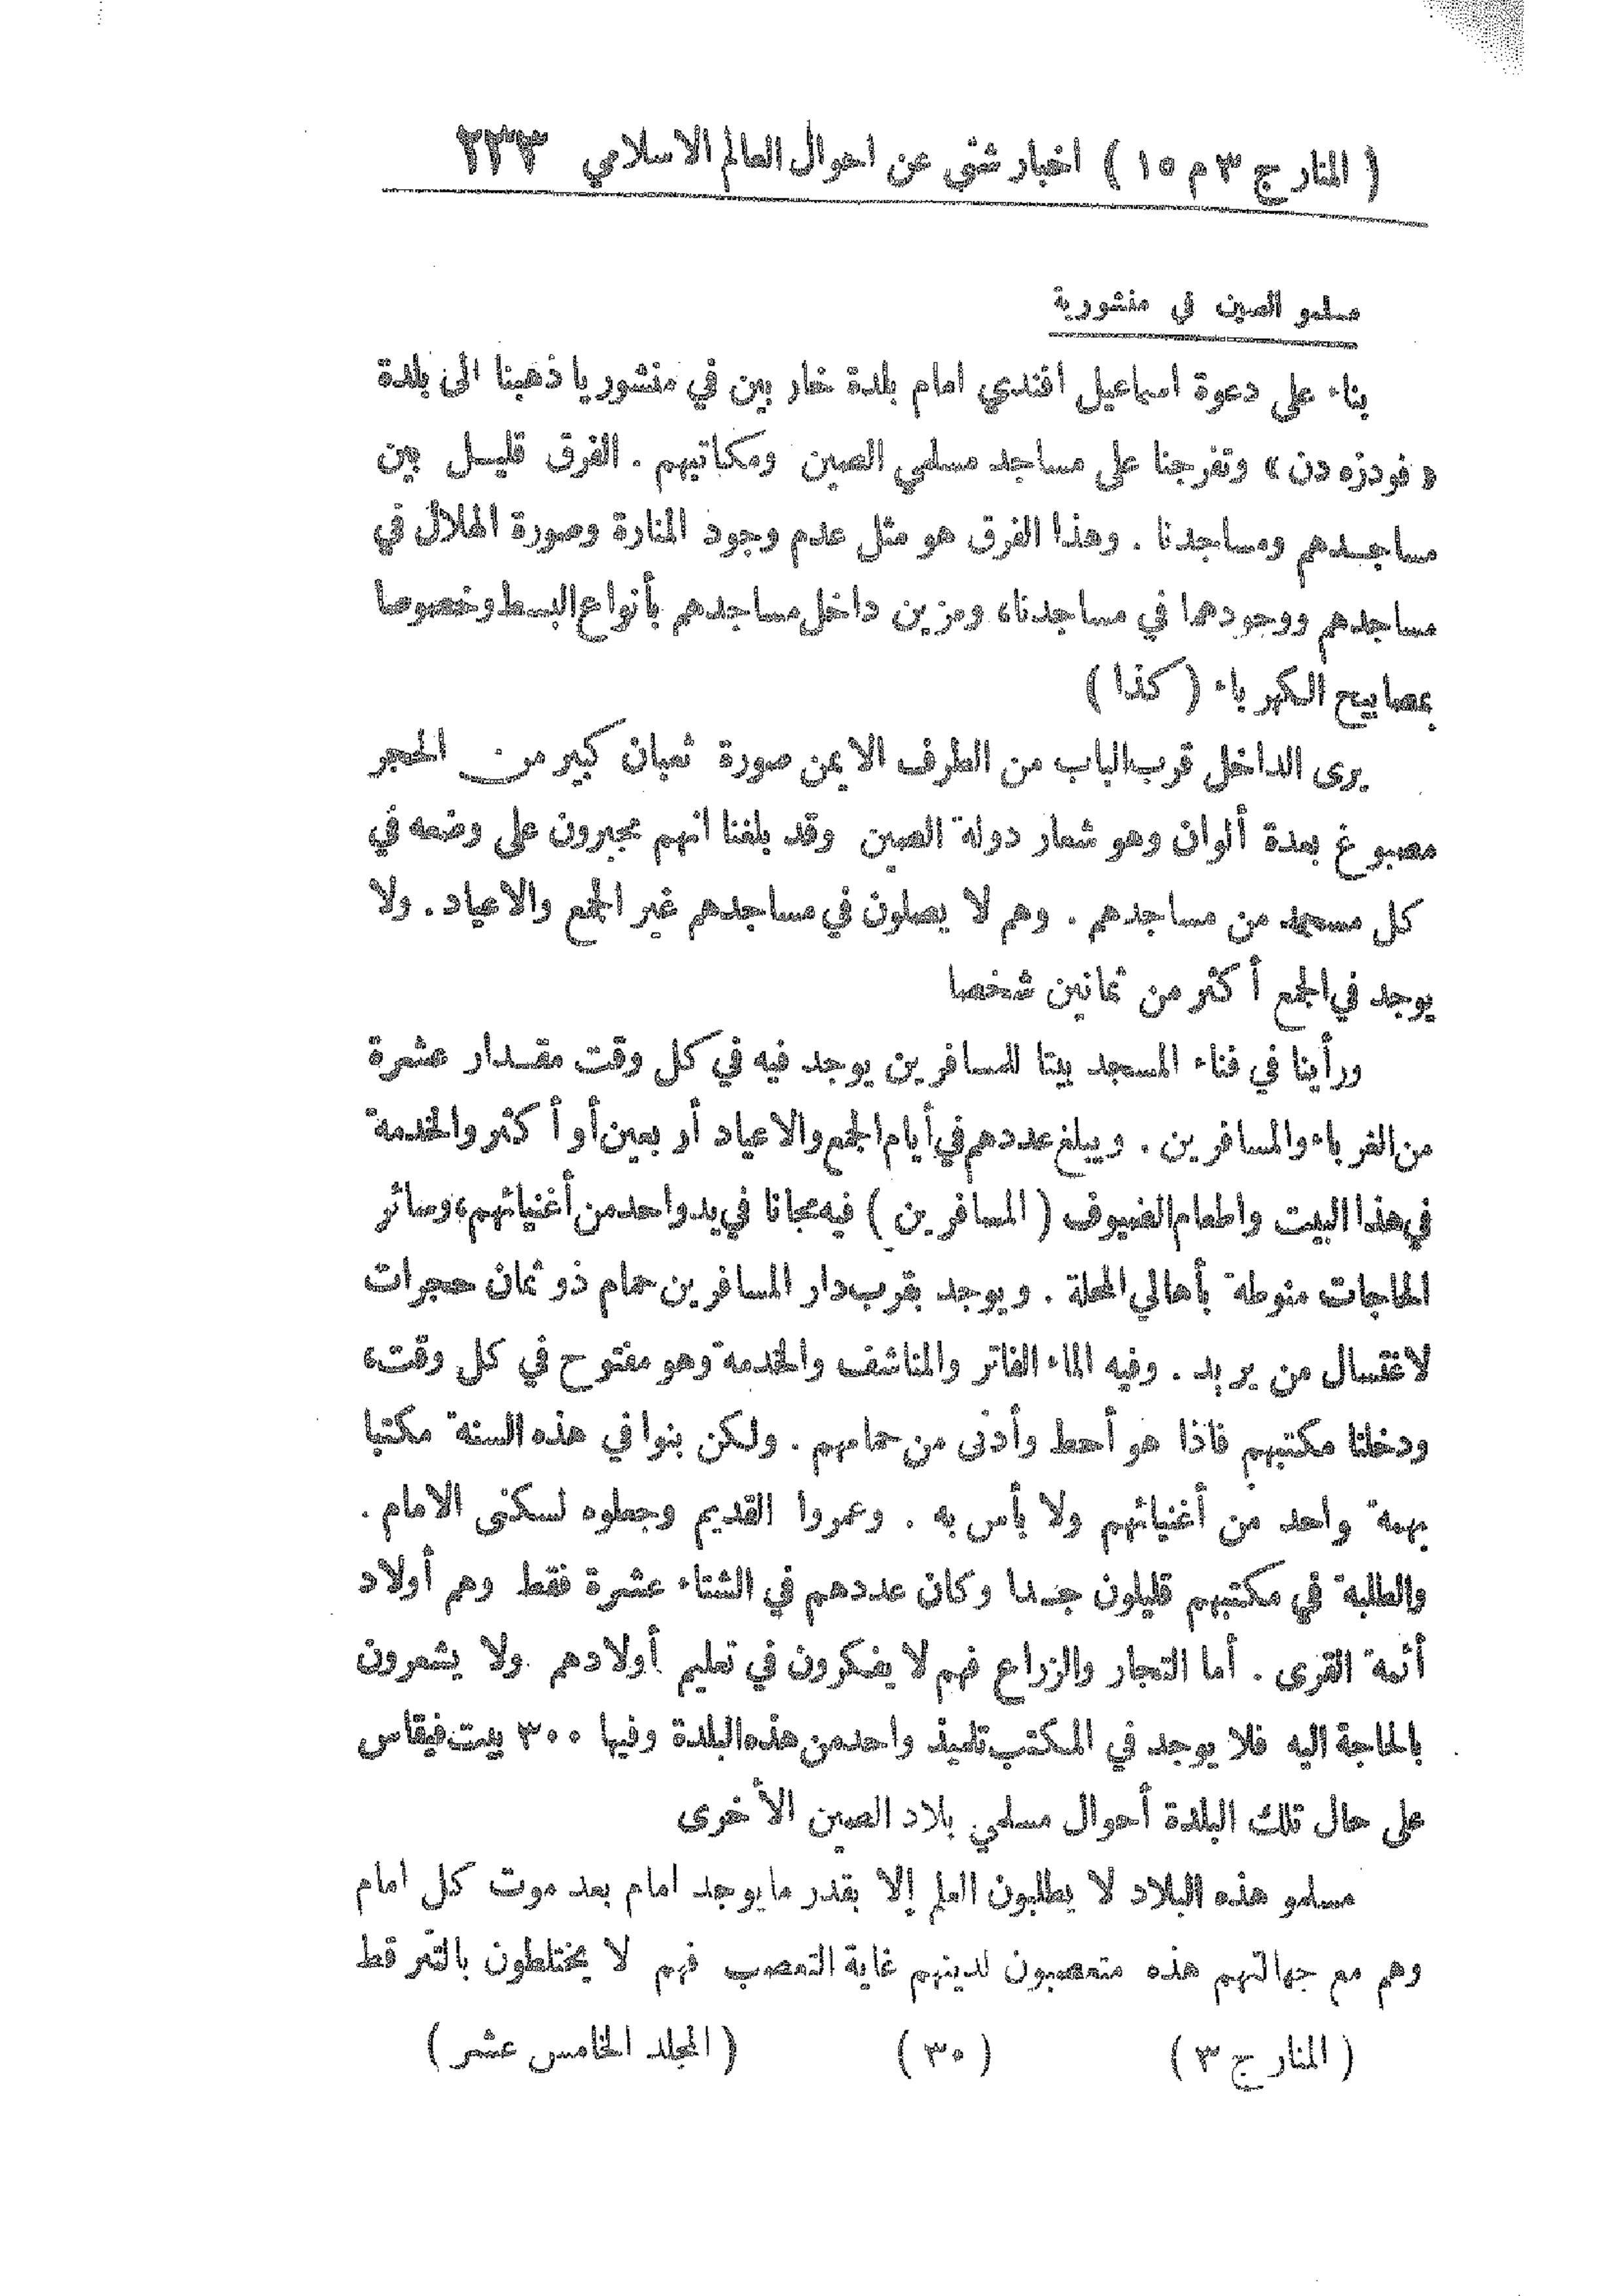 ( المنار ج ٣ م ١٥ ) اخبار شتى عن احوال العالم الاسلامي ٢٣٣
مسلمو الصين في منشورية
بناء على دعوة اسماعيل افندي امام بلدة خار بين في منشوريا ذهبنا الى بلدة
« فودزه دن » وتفرجنا على مساجد مسلمي الصين ومكاتبهم . الفرق قليل بين
مساجدهم ومساجدنا . وهذا الفرق هو مثل عدم وجود المنارة وصورة الهلال في
مساجدهم ووجودهما في مساجدنا، ومزين داخل مساجدهم بأنواع البسط وخصوصا
بمصابيح الكهرباء ( كذا )
يرى الداخل قرب الباب من الطرف الايمن صورة ثعبان كبير من الحجر
مصبوغ بعدة ألوان وهو شعار دولة الصين وقد بلغنا انهم مجبرون على وضعه في
كل مسجد من مساجدهم . وهم لا يصلون في مساجدهم غير الجمع والاعياد . ولا
يوجد في الجمع أكثر من ثمانين شخصا
ورأينا في فناء المسجد بيتا للمسافرين يوجد فيه في كل وقت مقدار عشرة
من الغرباء والمسافرين . ويبلغ عددهم في أيام الجمع والاعياد أربعين أو أكثر والخدمة
في هذا البيت واطعام الضيوف ( المسافرين ) فيه مجانا في يد واحد من أغنيائهم، وسائر
الحاجات منوطة بأهالي المحلة . ويوجد بقرب دار المسافرين حمام ذو ثمان حجرات
لاغتسال من يريد . وفيه الماء الفاتر والمناشف والخدمة وهو مفتوح في كل وقت،
ودخلنا مكتبهم فاذا هو أحط وأدنى من حمامهم . ولكن بنوا في هذه السنة مكتبا
بهمة واحد من أغنيائهم ولا بأس به . وعمروا القديم وجعلوه لسكنى الامام .
والطلبة في مكتبهم قليلون جدا وكان عددهم في الشتاء عشرة فقط وهم أولاد
أئمة القرى . أما التجار والزراع فهم لا يفكرون في تعليم أولادهم ولا يشعرون
بالحاجة اليه فلا يوجد في المكتب تلميذ واحد من هذه البلدة وفيها ٣٠٠ بيت فيقاس
على حال تلك البلدة أحوال مسلمي بلاد الصين الأخرى
مسلمو هذه البلاد لا يطلبون العلم إلا بقدر ما يوجد امام بعد موت كل امام
وهم مع جهالتهم هذه متعصبون لدينهم غاية التعصب فهم لا يختلطون بالتتر قط
( المنار ج ٣ ) ( ٣٠ ) ( المجلد الخامس عشر )